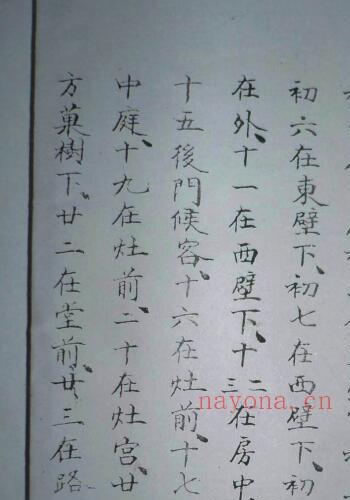 初六在東壁下、初七在西壁下、初
在外、十一在西壁下、十二三在房中
十五後門候客、十六在灶前、十七
中庭、十九在灶前、二十在灶宫、廿
方菓樹下、廿二在堂前、廿三在路
nayona.cn